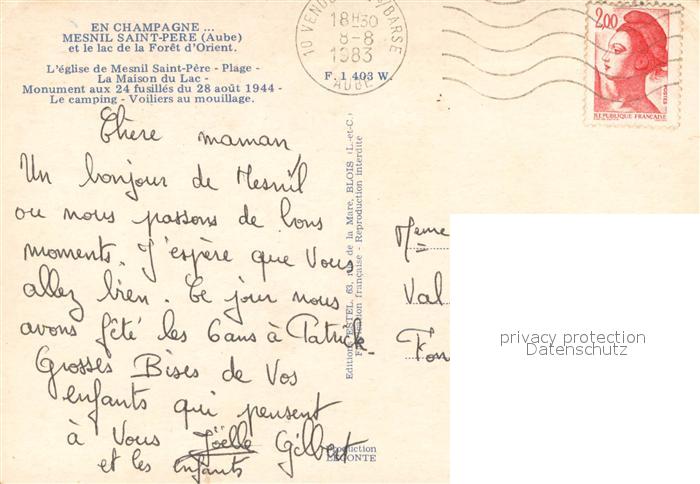 EN CHAMPAGNE ...
MESNIL SAINT-PERE (Aube)
et le lac de la Forêt d'Orient.
L'église de Mesnil Saint-Père - Plage -
La Maison du Lac -
Monument aux 24 fusillés du 28 août 1944 -
Le camping - Voiliers au mouillage.
10 VENDEUVRE BARSE
18H30
8-8
1983
AUBE
F. 1 403 W.
2,00
POSTES
REPUBLIQUE FRANÇAISE
Chère maman,
Un bonjour de Mesnil
ou nous passons de bons
moments. J'espère que Vous
allez bien. Ce jour nous
avons fêté les 6 ans à Patrick.
Grosses Bises de Vos
enfants qui pensent
à Vous Joëlle Gilbert
et les enfants
de la Mare, BLOIS (L.-et-C.)
française - Reproduction interdite
LECONTE
Mme
Val
Fon
privacy protection
Datenschutz